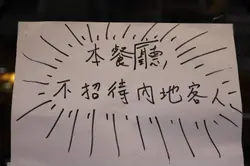 本餐廳
不招待內地客人